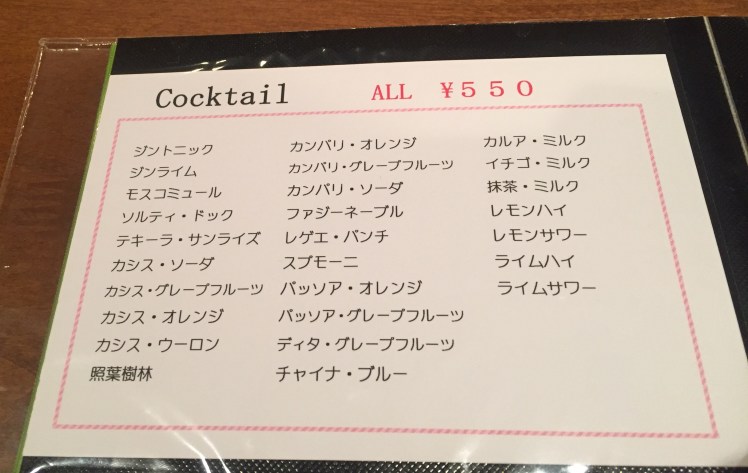 Cocktail ALL ¥550
ジントニック
ジンライム
モスコミュール
ソルティ・ドック
テキーラ・サンライズ
カシス・ソーダ
カシス・グレープフルーツ
カシス・オレンジ
カシス・ウーロン
照葉樹林
カンパリ・オレンジ
カンパリ・グレープフルーツ
カンパリ・ソーダ
ファジーネーブル
レゲエ・パンチ
スプモーニ
パッソア・オレンジ
パッソア・グレープフルーツ
ディタ・グレープフルーツ
チャイナ・ブルー
カルア・ミルク
イチゴ・ミルク
抹茶・ミルク
レモンハイ
レモンサワー
ライムハイ
ライムサワー